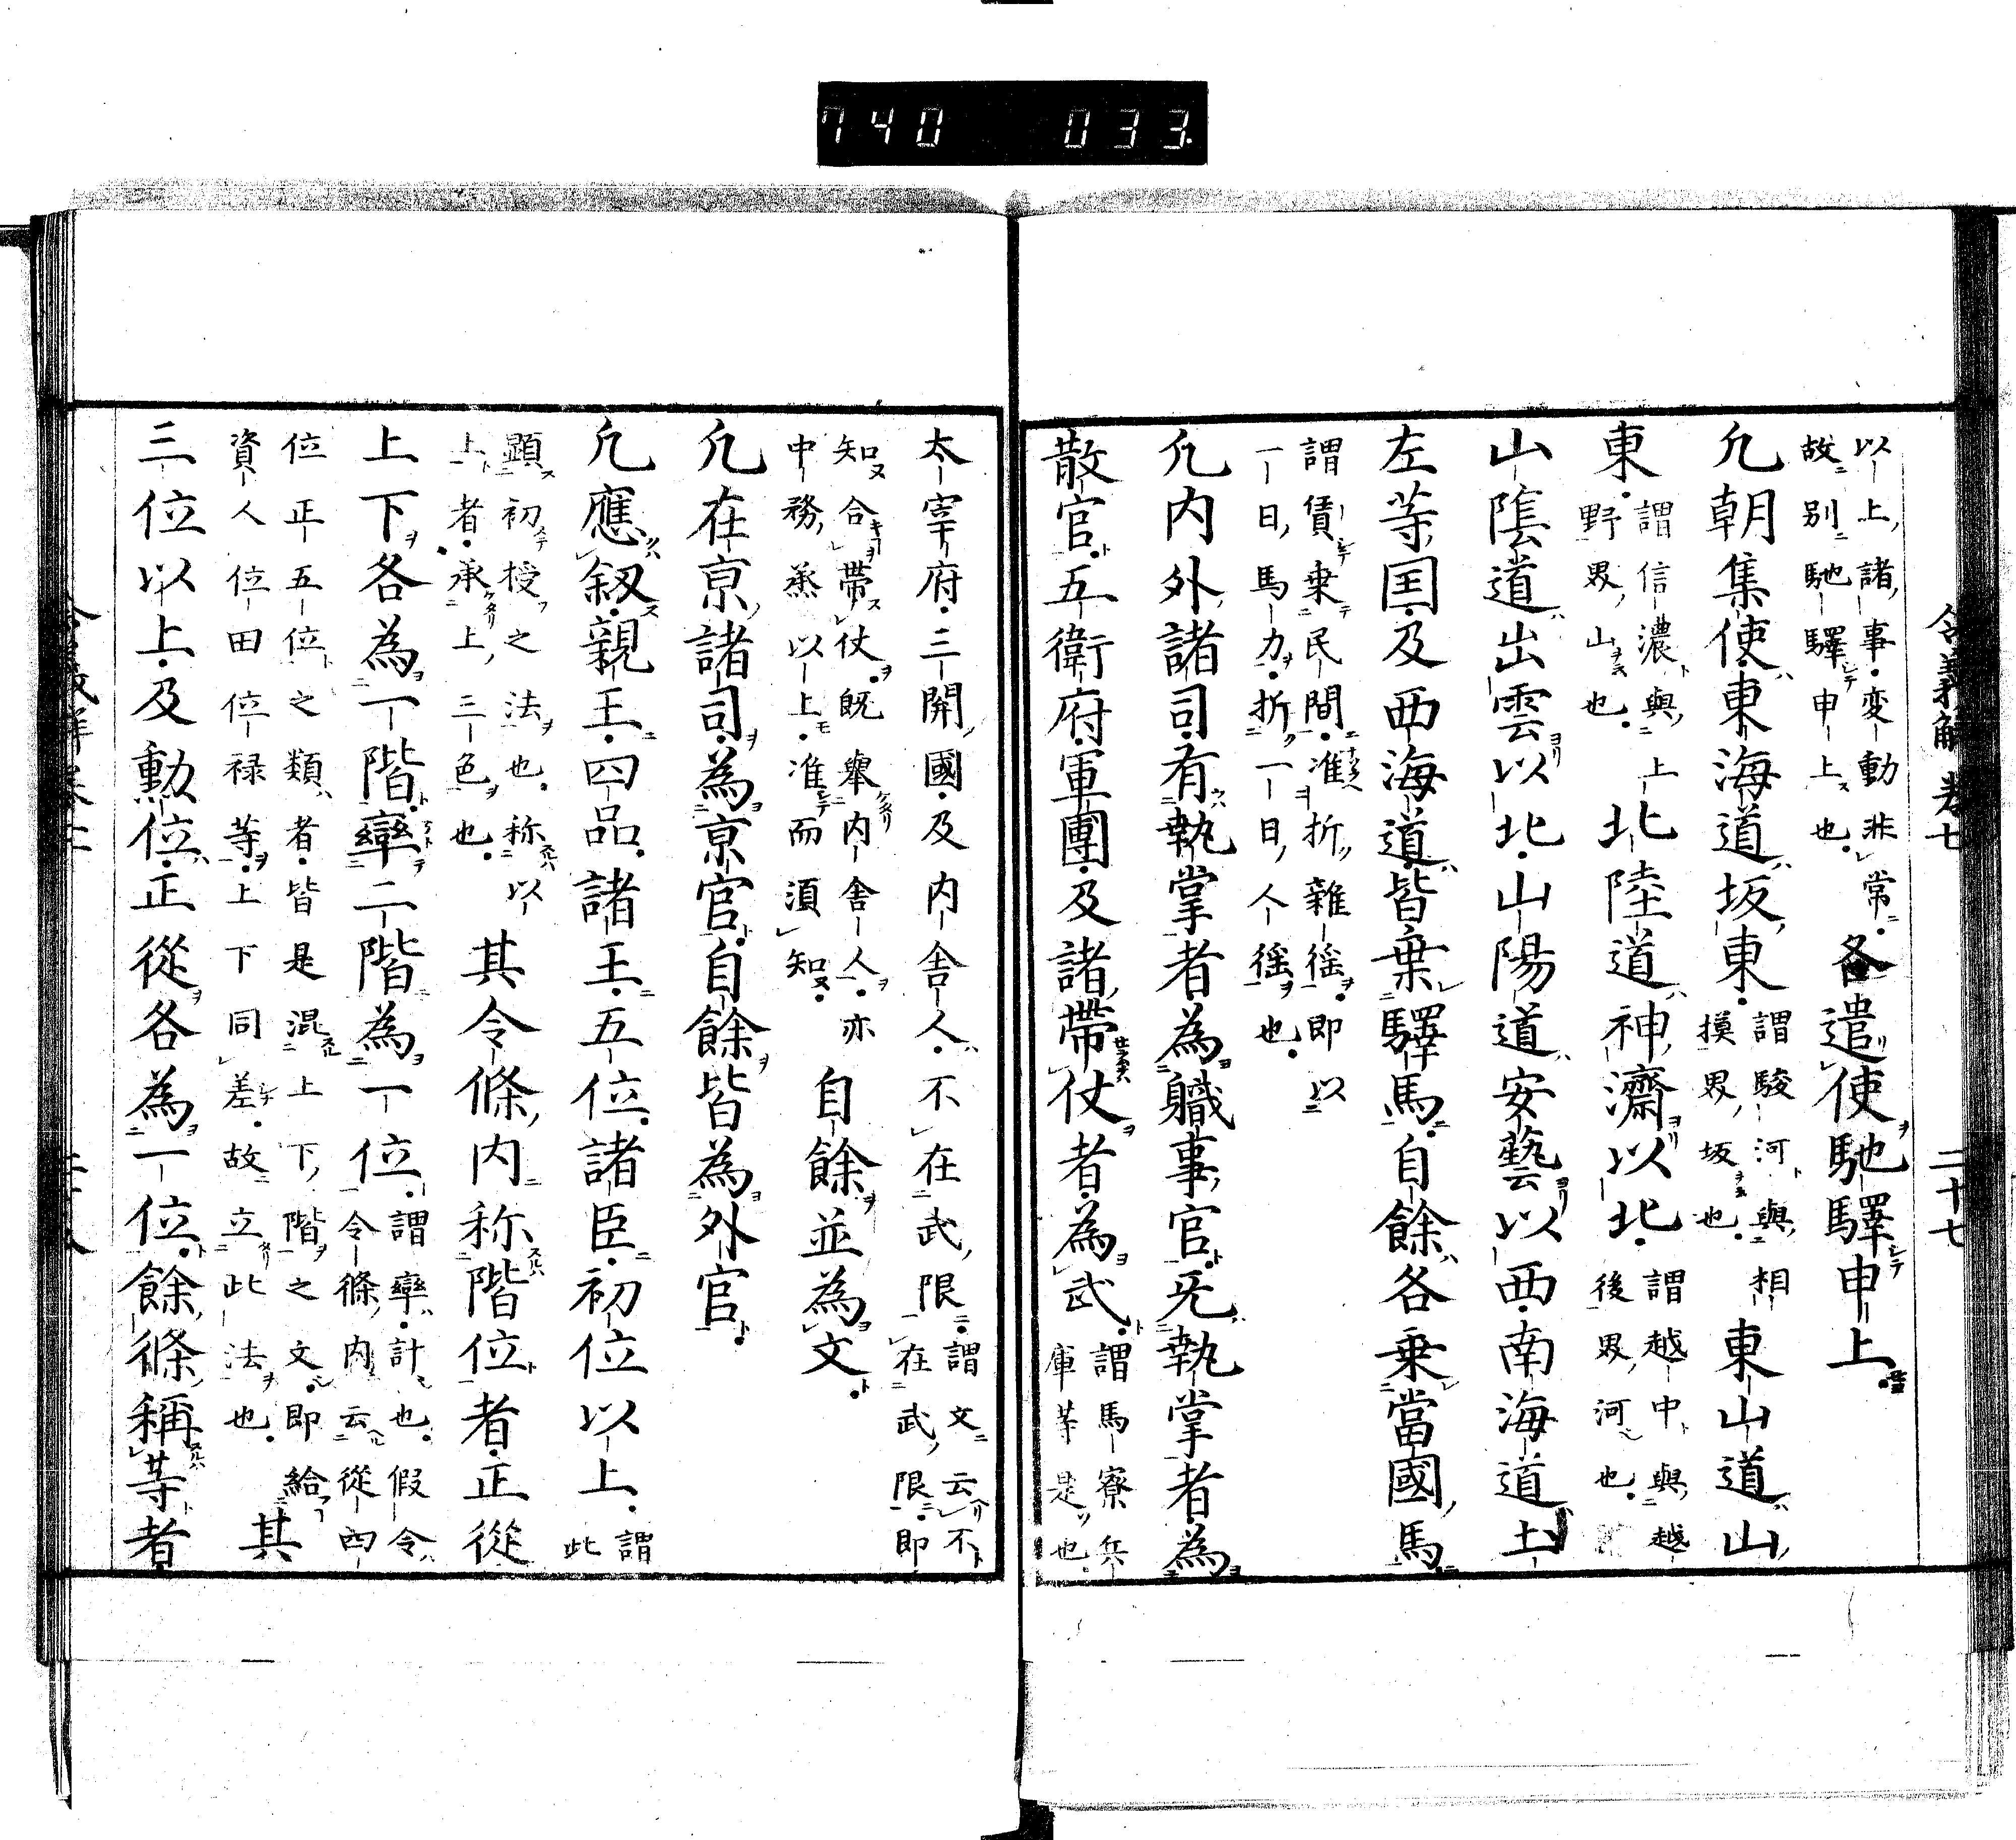 740 033
令義解 卷七 二十七
以上諸事変動非常
故別馳驛申上也
各遣使馳驛申上
凢朝集使東海道坂東
謂駿河與相
摸界坂也
東山道山
東
謂信濃與上
野界山也
北陸道神濟以北
謂越中與越
後界河也
山陰道出雲以北山陽道安藝以西南海道土
左等国及西海道皆乗驛馬自餘各乗當國馬
謂賃乗民間准折雜徭即以
一日馬力折一日人徭也
凢内外諸司有執掌者為職事官无執掌者為
散官五衛府軍團及諸帶仗者為武
謂馬寮兵
庫等是也
太宰府三関國及内舎人不在武限
謂文云不
在武限即
知合帶仗既舉内舎人亦
中務丞以上准而須知
自餘並為文
凢在京諸司為京官自餘皆為外官
凢應叙親王四品諸王五位諸臣初位以上
謂
此
顕初授之法也称以
上者承上三色也
其令條内称階位者正從
上下各為一階率二階為一位
謂率計也假令
令條内云從四
位正五位之類者皆是混上下階之文即給
資人位田位禄等上下同差故立此法也
其
三位以上及勳位正從各為一位餘條稱等者